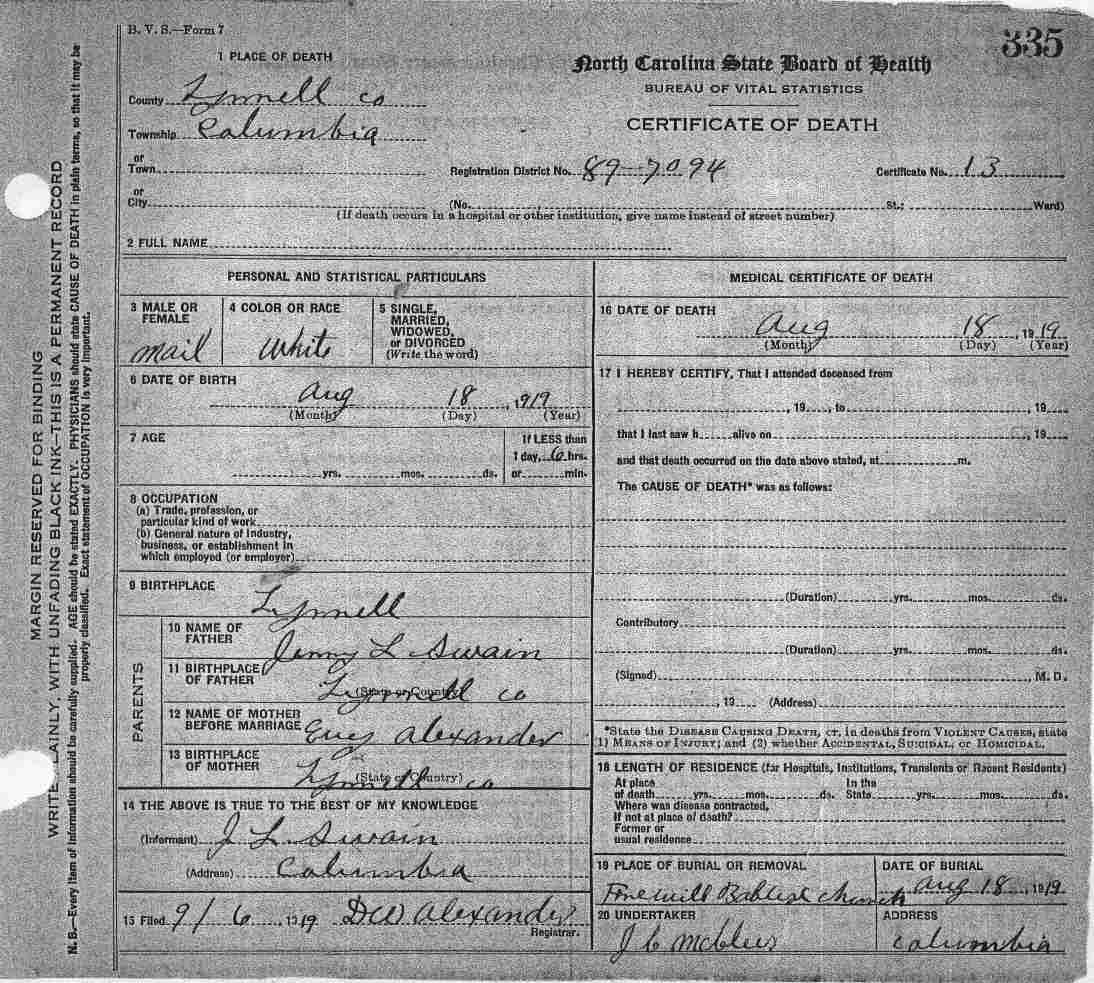 B. V. S.—Form 7
335
1 PLACE OF DEATH
North Carolina State Board of Health
BUREAU OF VITAL STATISTICS
CERTIFICATE OF DEATH
County Tyrrell co
Township Columbia
or
Town
Registration District No. 89-7094
Certificate No. 13
or
City
(No. St.; Ward)
(If death occurs in a hospital or other institution, give name instead of street number)
2 FULL NAME
PERSONAL AND STATISTICAL PARTICULARS
3 MALE OR FEMALE
mail
4 COLOR OR RACE
White
5 SINGLE, MARRIED, WIDOWED, or DIVORCED
(Write the word)
6 DATE OF BIRTH
Aug 18, 1919
(Month) (Day) (Year)
7 AGE
yrs. mos. ds.
If LESS than
1 day, 6 hrs.
or min.
8 OCCUPATION
(a) Trade, profession, or
particular kind of work
(b) General nature of industry,
business, or establishment in
which employed (or employer)
9 BIRTHPLACE
Tyrrell
PARENTS
10 NAME OF FATHER
L Swain
11 BIRTHPLACE OF FATHER
(State or Country)
Tyrrell co
12 NAME OF MOTHER BEFORE MARRIAGE
Alexander
13 BIRTHPLACE OF MOTHER
(State or Country)
Tyrrell co
14 THE ABOVE IS TRUE TO THE BEST OF MY KNOWLEDGE
(Informant) J L Swain
(Address) Columbia
15 Filed 9/6, 1919 DW Alexander
Registrar.
MEDICAL CERTIFICATE OF DEATH
16 DATE OF DEATH
Aug 18, 1919
(Month) (Day) (Year)
17 I HEREBY CERTIFY, That I attended deceased from
, 19 , to , 19
that I last saw h alive on , 19
and that death occurred on the date above stated, at m.
The CAUSE OF DEATH* was as follows:
(Duration) yrs. mos. ds.
Contributory
(Duration) yrs. mos. ds.
(Signed) , M. D.
, 19 (Address)
*State the DISEASE CAUSING DEATH, or, in deaths from VIOLENT CAUSES, state
1) MEANS OF INJURY; and (2) whether ACCIDENTAL, SUICIDAL, or HOMICIDAL.
18 LENGTH OF RESIDENCE (for Hospitals, Institutions, Transients or Recent Residents)
At place of death yrs. mos. ds. In the State yrs. mos. ds.
Where was disease contracted,
If not at place of death?
Former or
usual residence
19 PLACE OF BURIAL OR REMOVAL
Church
DATE OF BURIAL
Aug 18, 1919
20 UNDERTAKER
J C
ADDRESS
Columbia
MARGIN RESERVED FOR BINDING
WRITE PLAINLY, WITH UNFADING BLACK INK—THIS IS A PERMANENT RECORD
N. B.—Every item of information should be carefully supplied. AGE should be stated EXACTLY. PHYSICIANS should state CAUSE OF DEATH in plain terms, so that it may be
properly classified. Exact statement of OCCUPATION is very important.